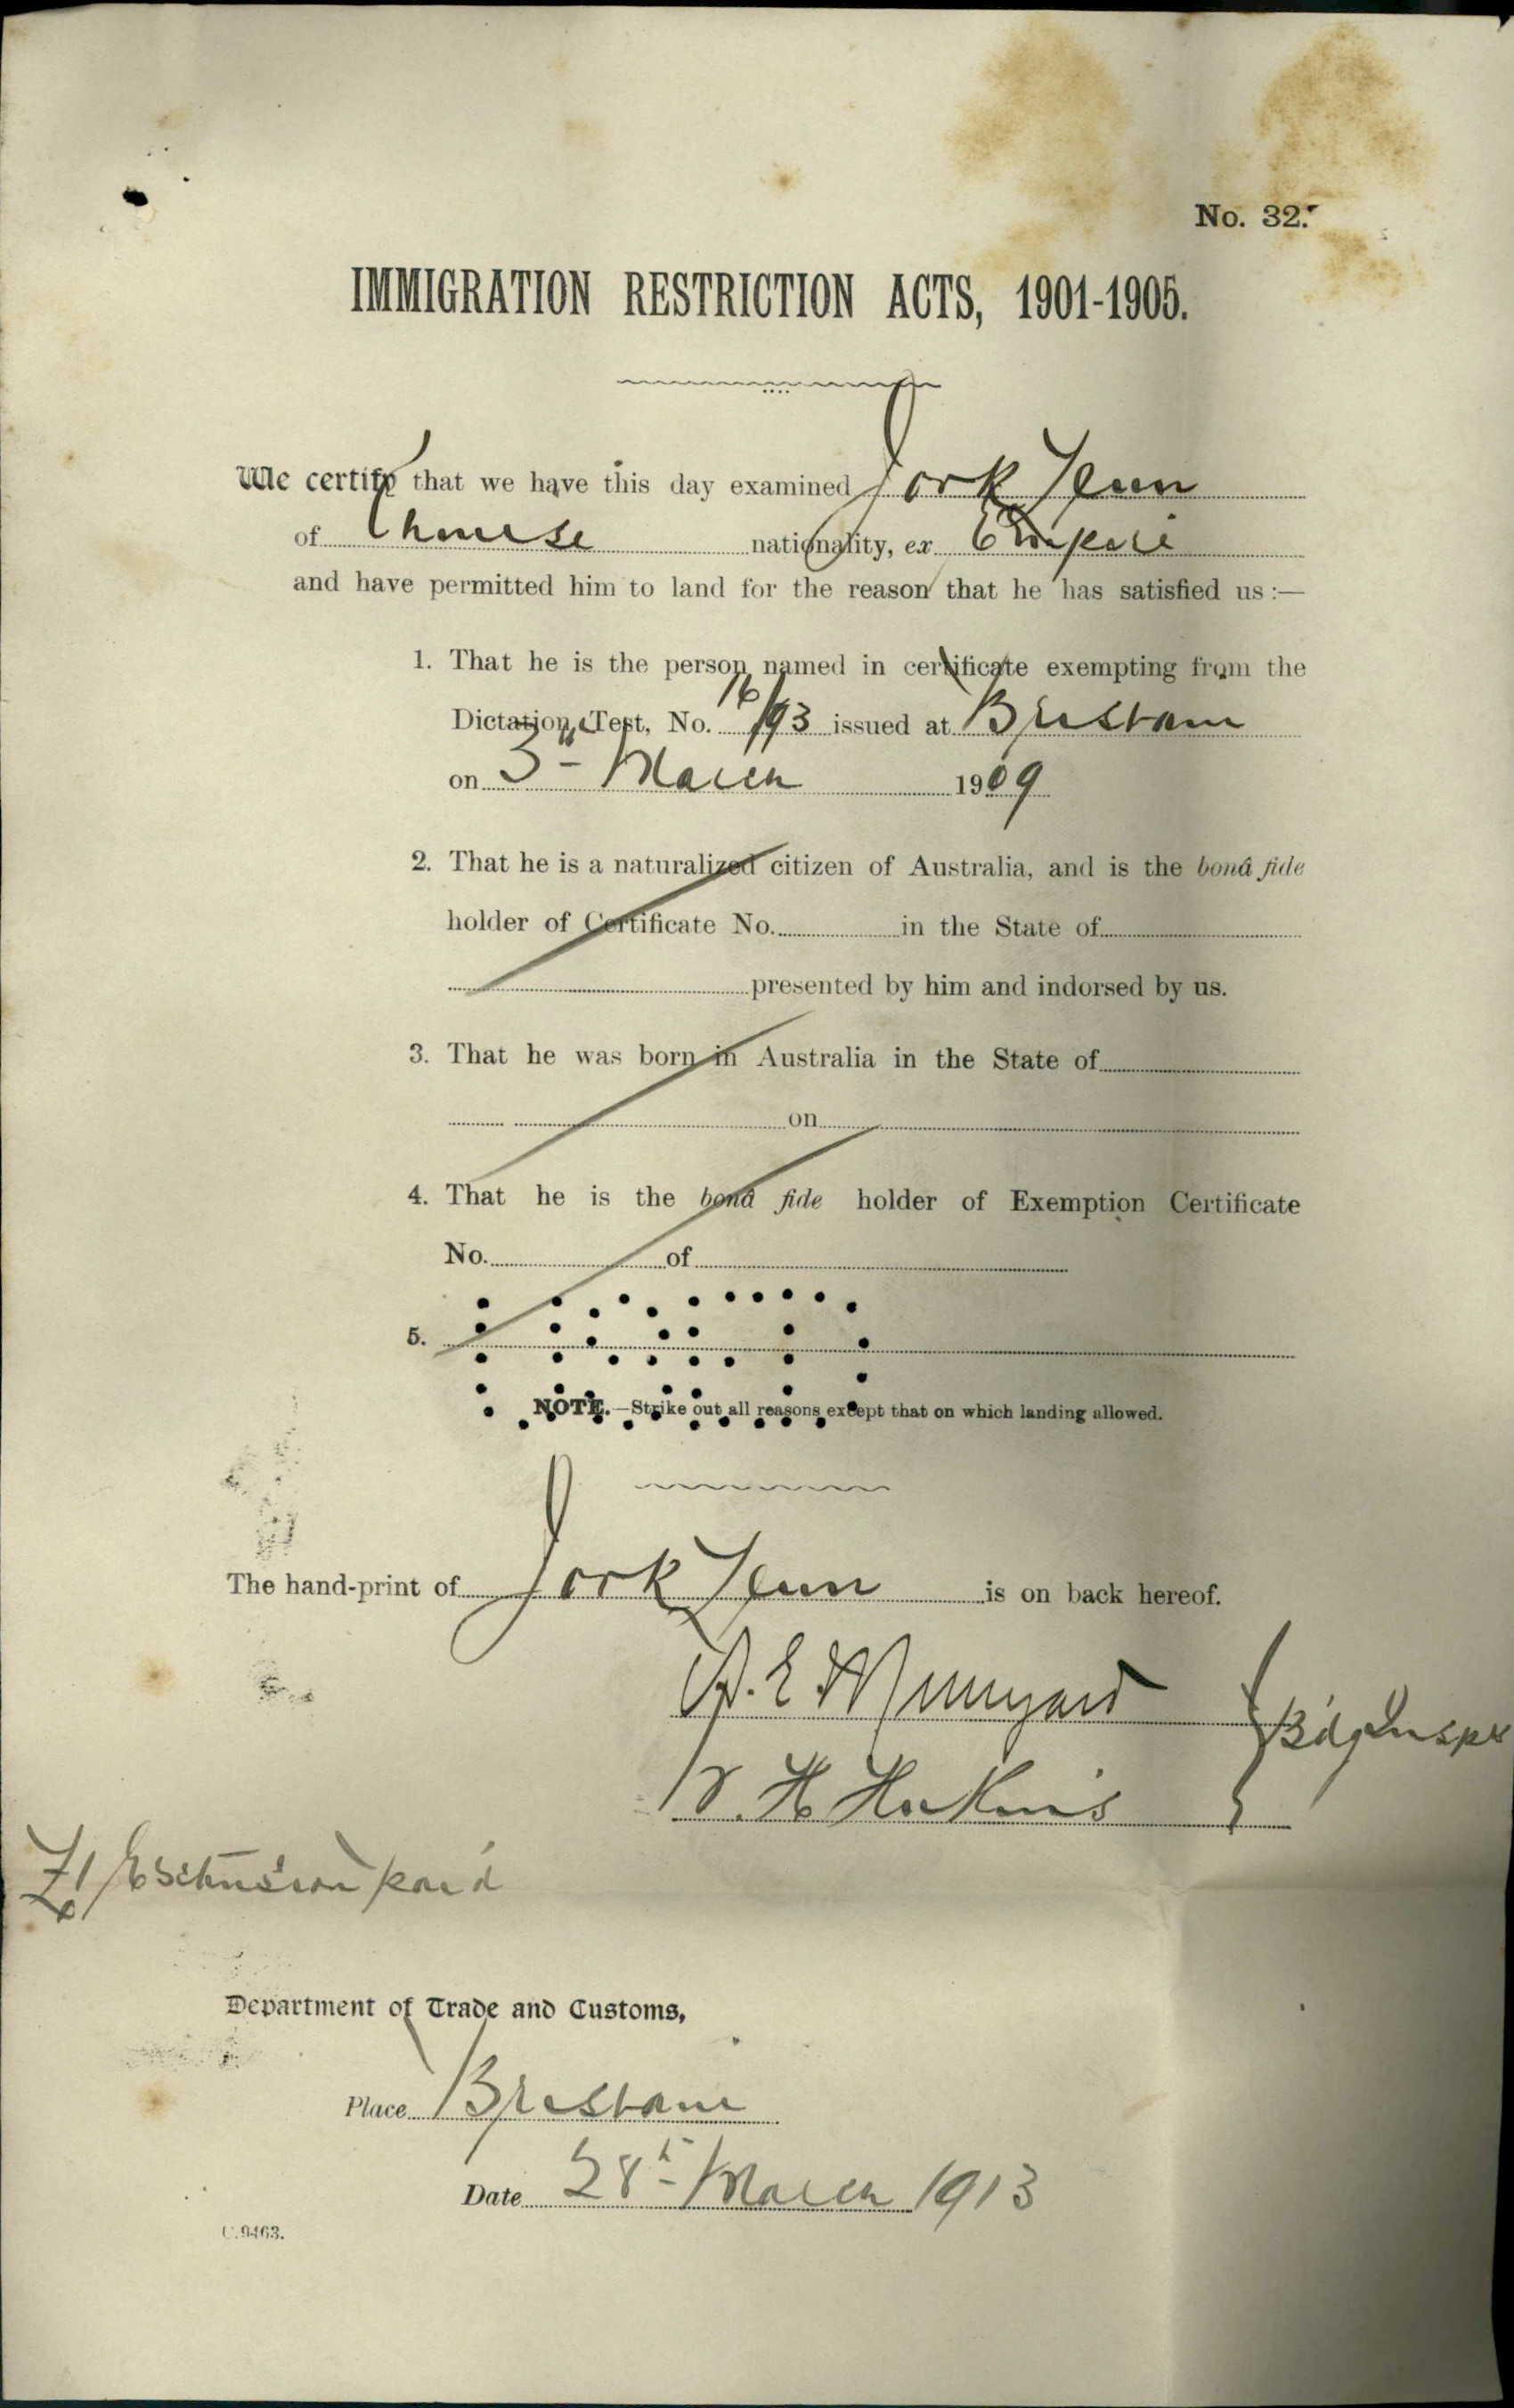 No. 32.
IMMIGRATION RESTRICTION ACTS, 1901-1905.
We certify that we have this day examined Jork Yenn
of Chinese nationality, ex Empire
and have permitted him to land for the reason that he has satisfied us :—
1. That he is the person named in certificate exempting from the
Dictation Test, No. 16/93 issued at Brisbane
on 3 - March 1909
2. That he is a naturalized citizen of Australia, and is the bonâ fide
holder of Certificate No. in the State of
presented by him and indorsed by us.
3. That he was born in Australia in the State of
on
4. That he is the bonâ fide holder of Exemption Certificate
No. of
5.
NOTE.—Strike out all reasons except that on which landing allowed.
The hand-print of Jork Yenn is on back hereof.
W. H. Hokins
£1 Extension paid
Department of Trade and Customs,
Place Brisbane
Date 28th March 1913
C.9463.